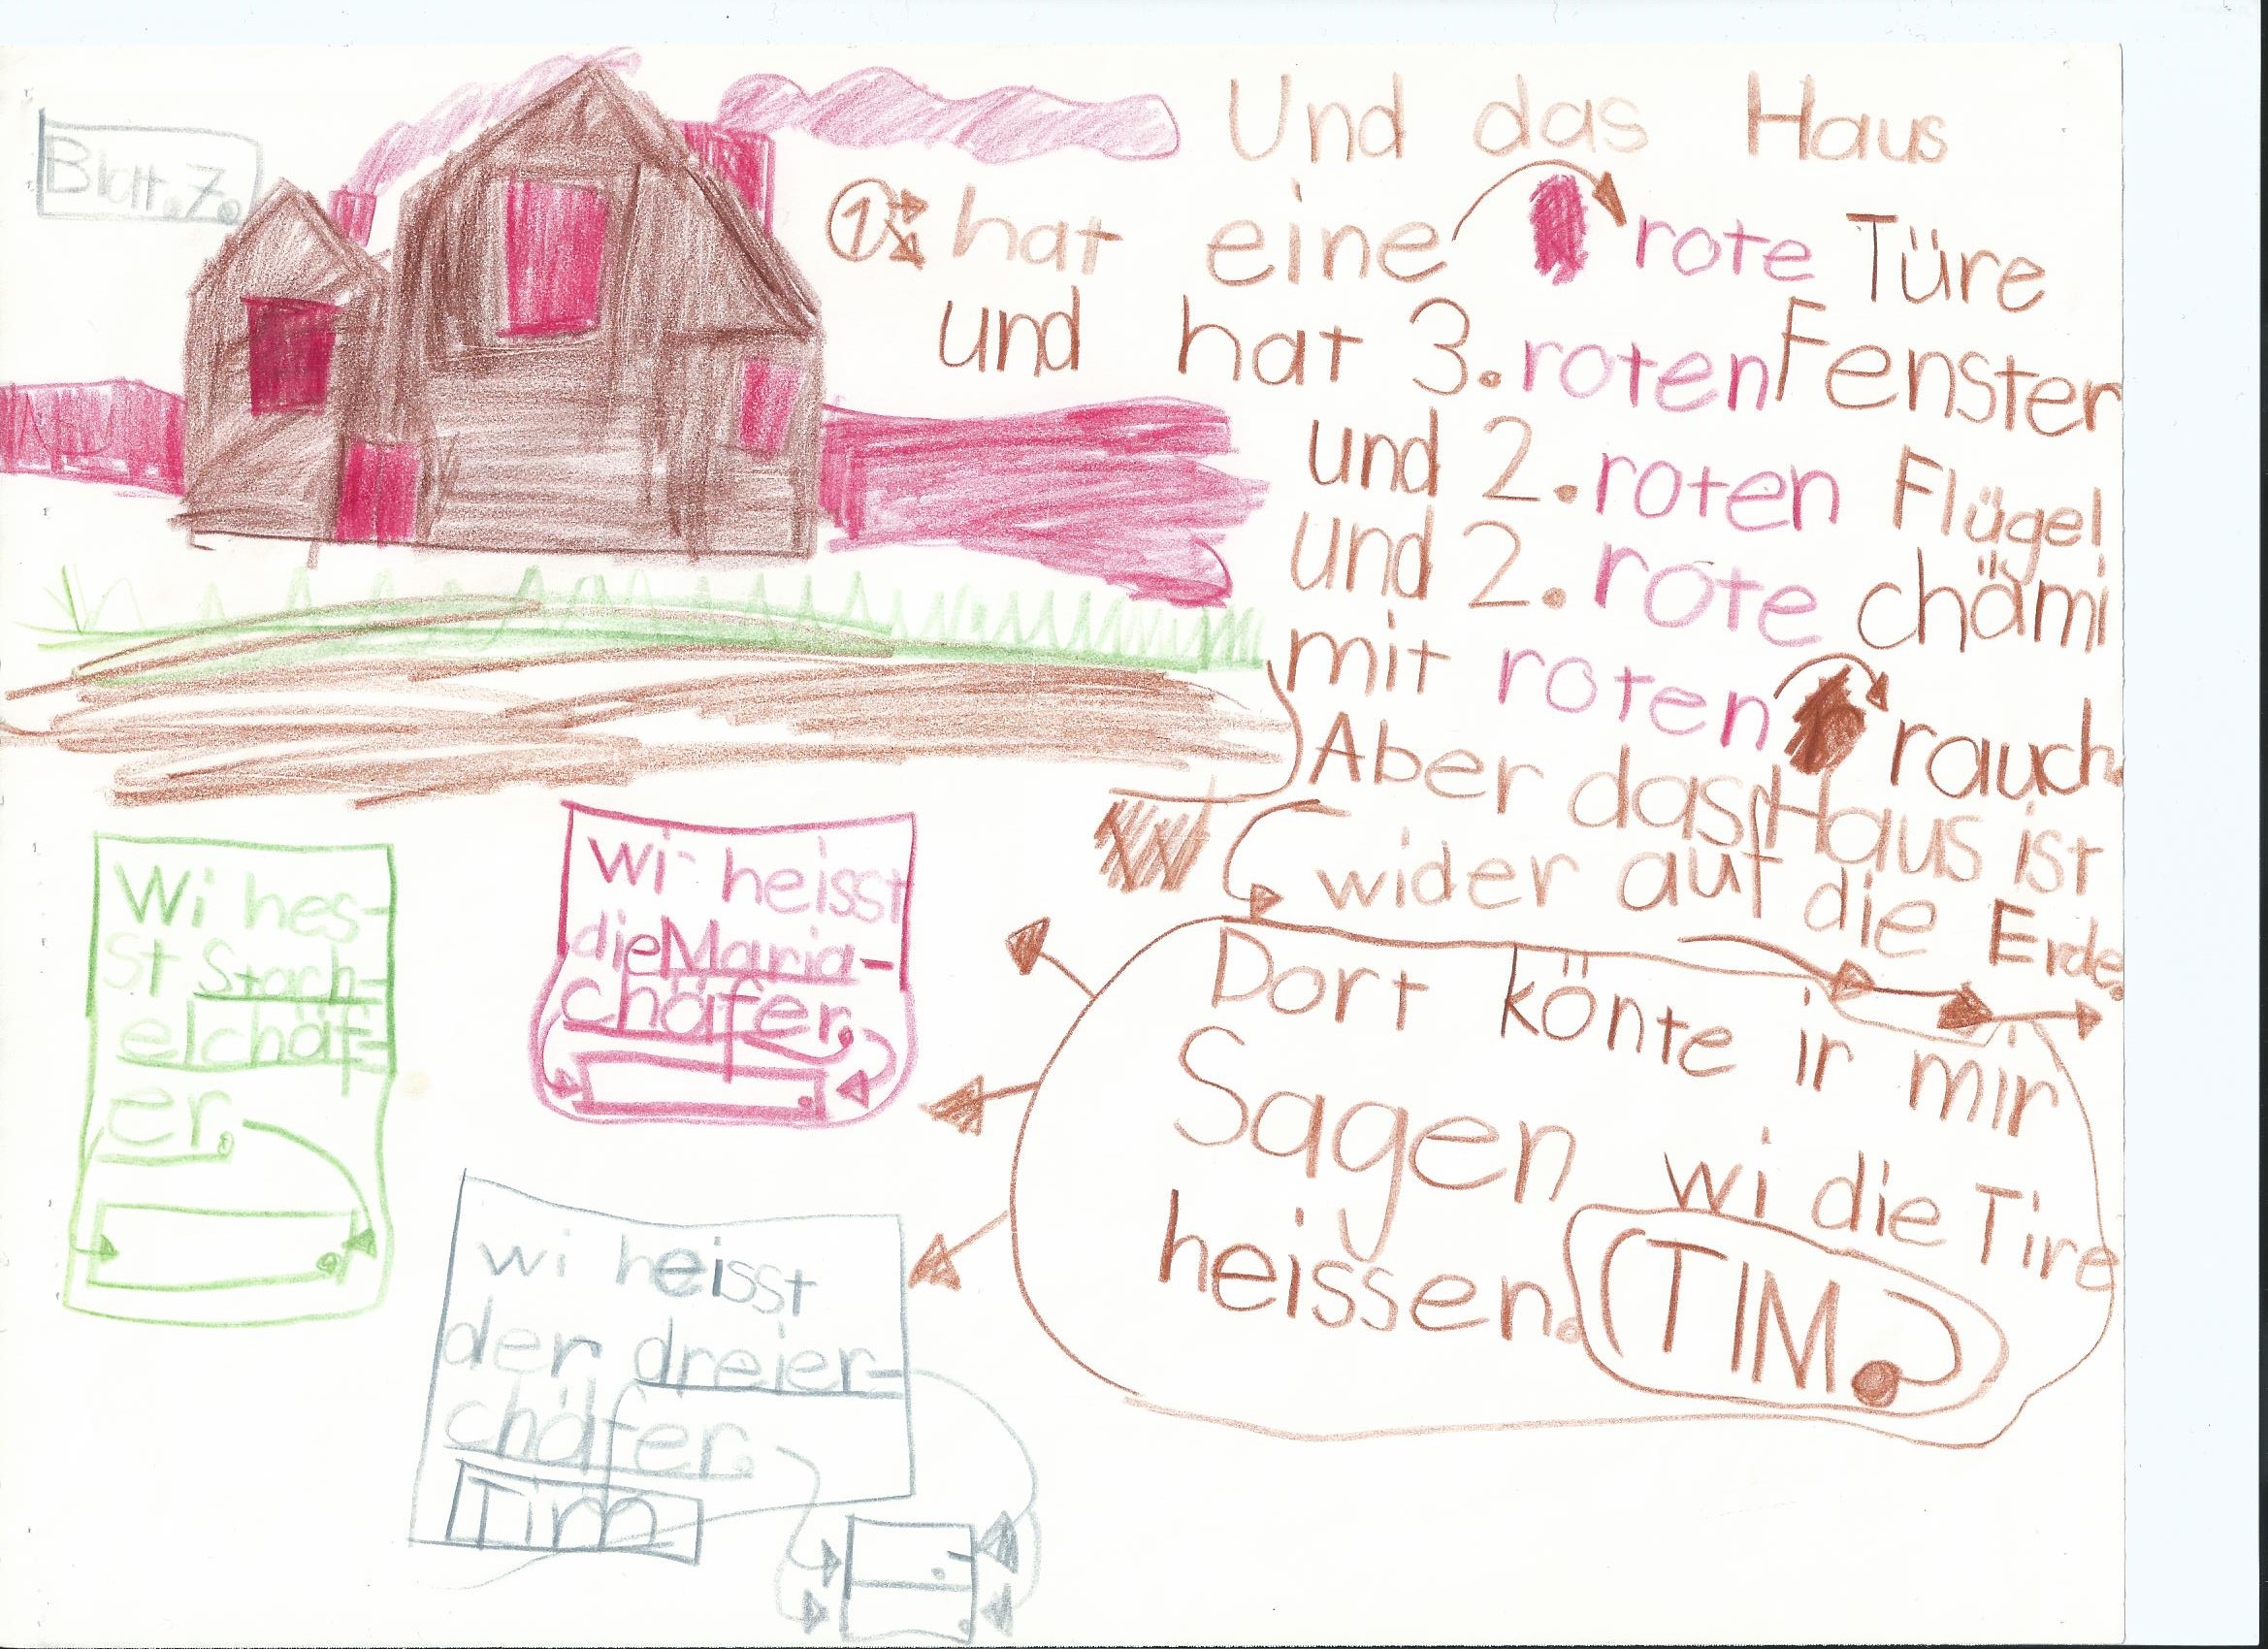 Blatt.7.
Und das Haus
1 hat eine rote Türe
und hat 3. roten Fenster
und 2. roten Flügel
und 2. rote chämi
mit roten rauch.
Aber das Haus ist
wider auf die Erde.
Dort könte ir mir
Sagen wi die Tire
heissen. (TIM.
Wi hes-
st Stach-
elchäf-
er.
wi heisst
die Maria-
chäfer.
wi heisst
der dreier-
chäfer.
Tim